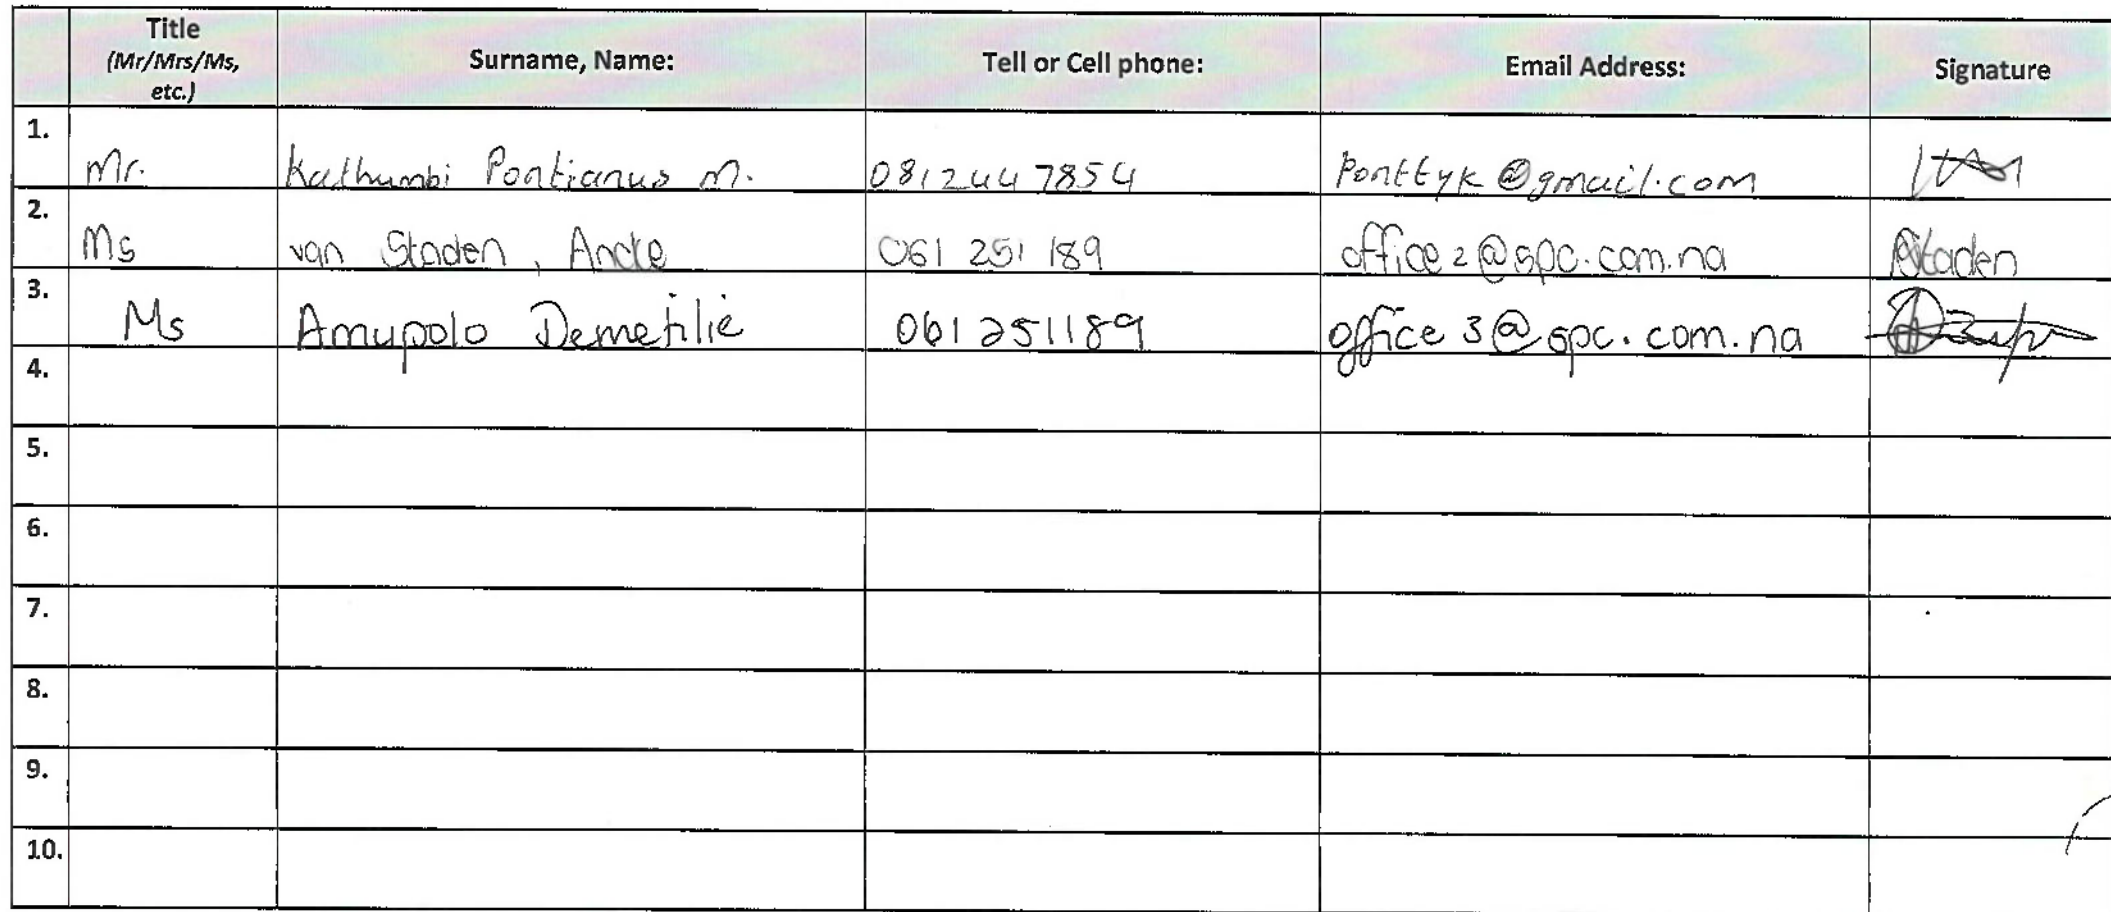 Title
(Mr/Mrs/Ms,
etc.)
Surname, Name:
Tell or Cell phone:
Email Address:
Signature
1.
Mr.
Kathumbi Pontianus M.
0812447854
Ponttyk@gmail.com
2.
Ms
van Staden,
061 251 189
office2@spc.com.na
Staden
3.
Ms
Amupolo
061 251189
office3@spc.com.na
4.
5.
6.
7.
8.
9.
10.